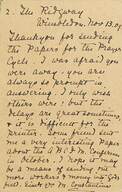 2. The Ridgway
Wimbledon, Nov. 13. 09
Thank you for sending
the Papers for the Prayer
Cycle. I was afraid you
were away - you are
always so prompt in
answering. I only wish
others were! but the
delays are great sometimes,
& it is difficult for the
printer. Some friend sent
me a very interesting Paper
about the W.E.M. England
in October. I hope it may
be a means of sending out
more workers & money into the
field. Kind